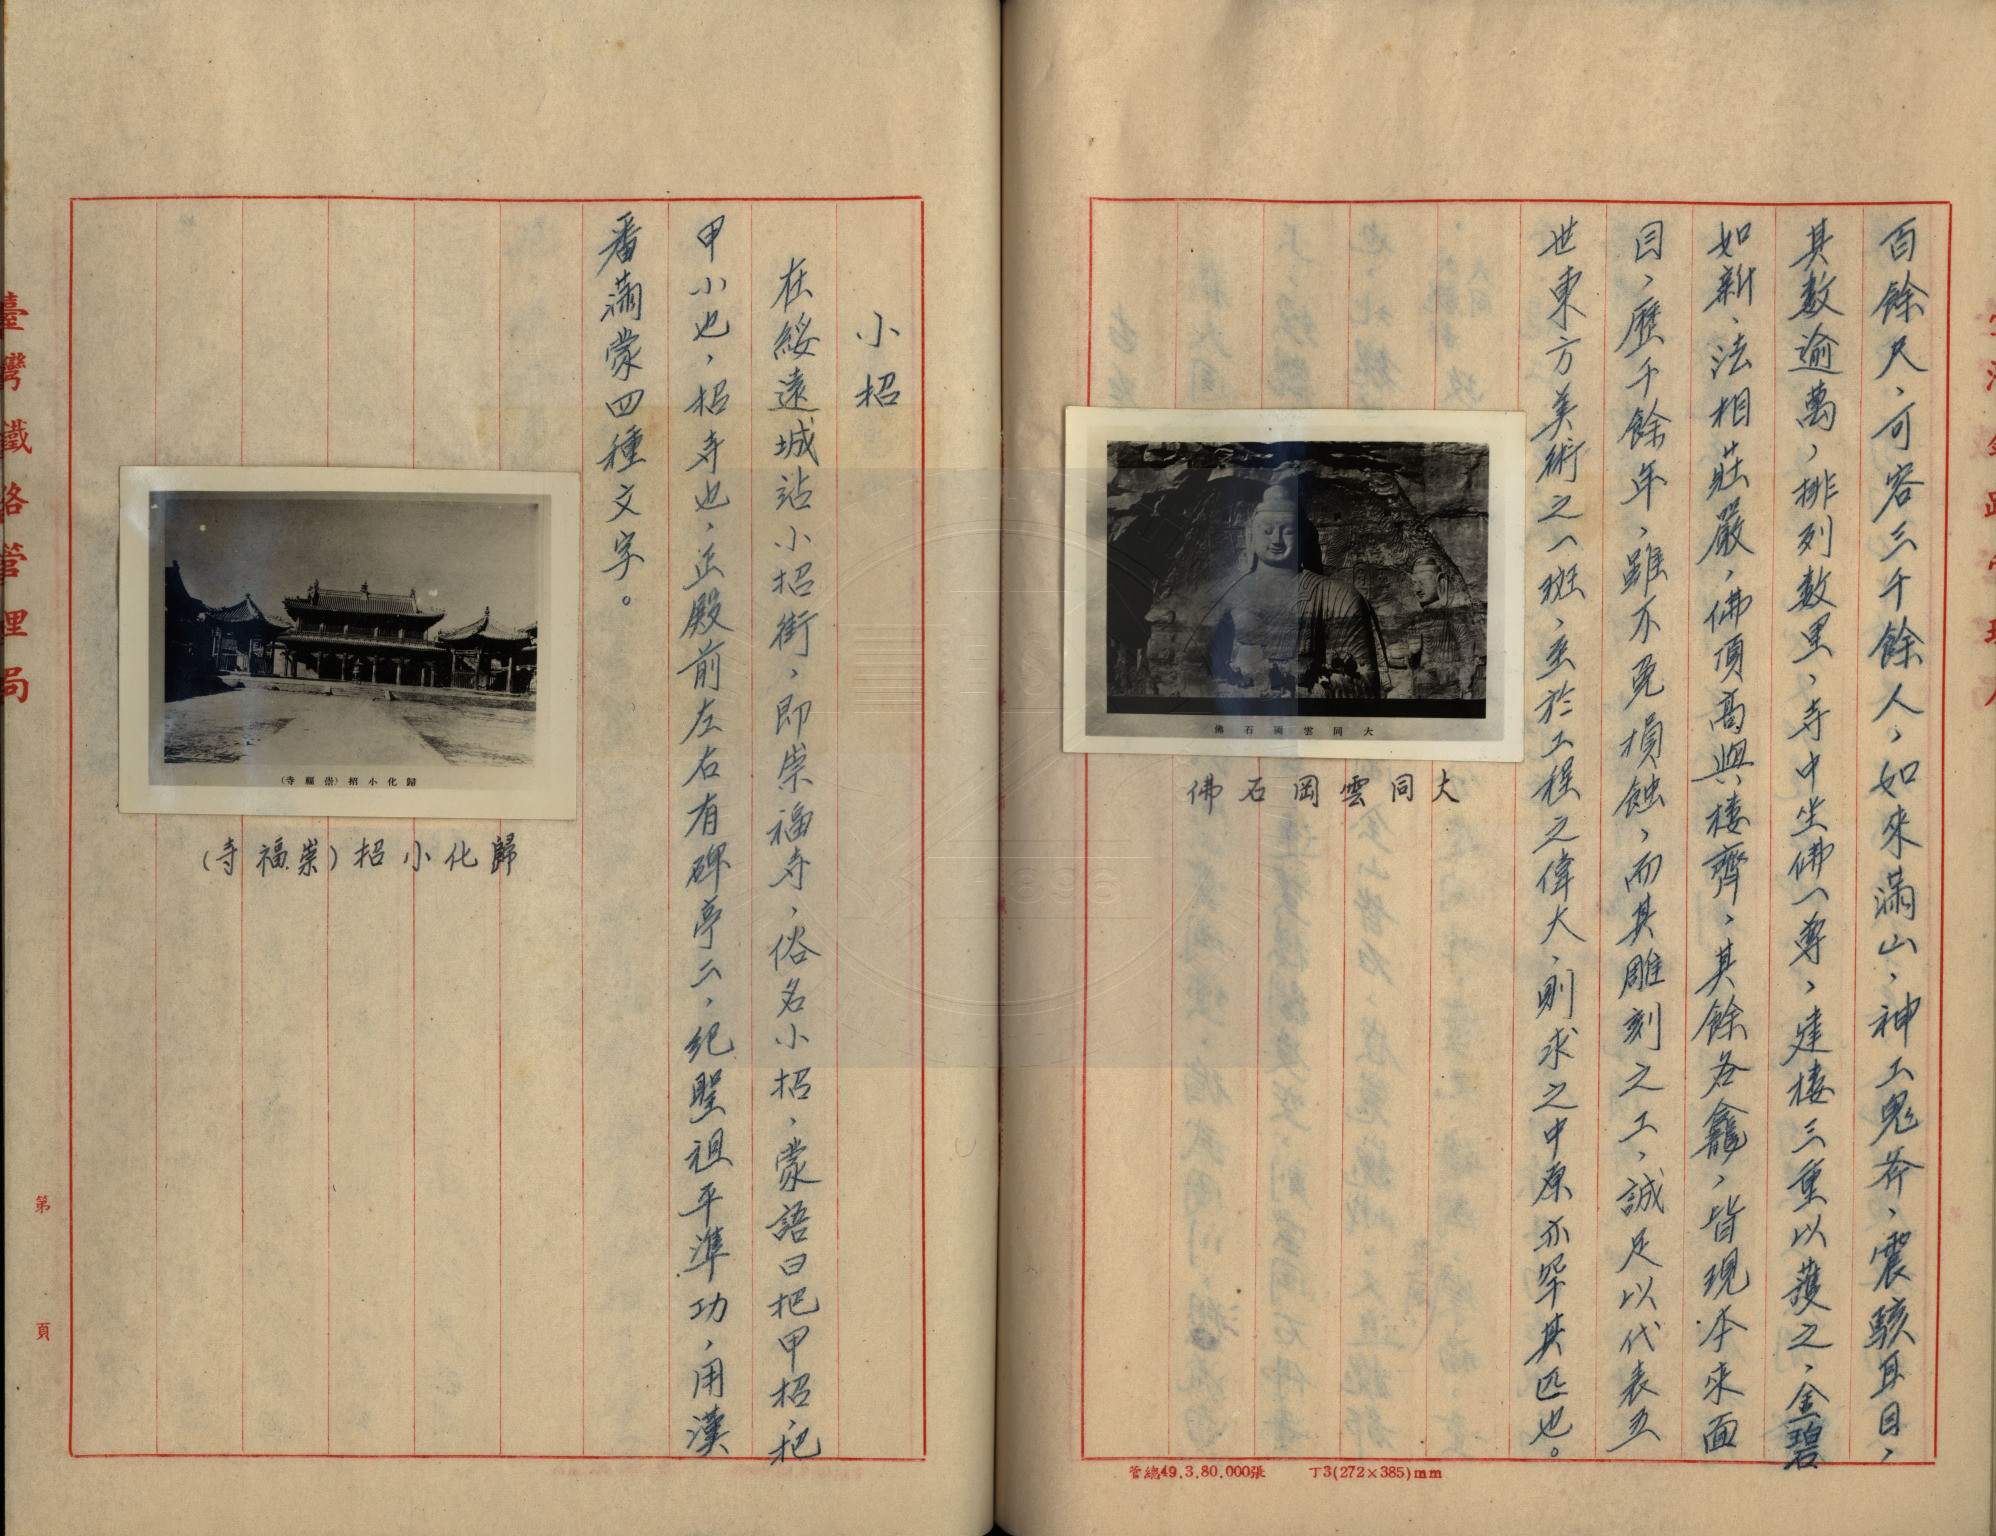 百餘尺，可容三千餘人，如來滿山，神工鬼斧，震駭耳目，
其數逾萬，排列數里，寺中坐佛一尊，建樓三重以護之，金碧
如新，法相莊嚴，佛頂高與樓齊，其餘各龕，皆現本來面
目，歷千餘年，雖不免損蝕，而其雕刻之工，誠足以代表五
世東方美術之一斑，至於工程之偉大，則求之中原亦罕其匹也。
大同雲岡石佛
大同雲岡石佛
管總49.3.80.000張　丁3(272×385)mm
小招
在綏遠城站小招街，即崇福寺，俗名小招，蒙語曰把甲招，把
甲小也，招寺也，正殿前左右有碑亭二，紀聖祖平準功，用漢
番滿蒙四種文字。
歸化小招(崇福寺)
歸化小招(崇福寺)
臺灣鐵路管理局
第　頁